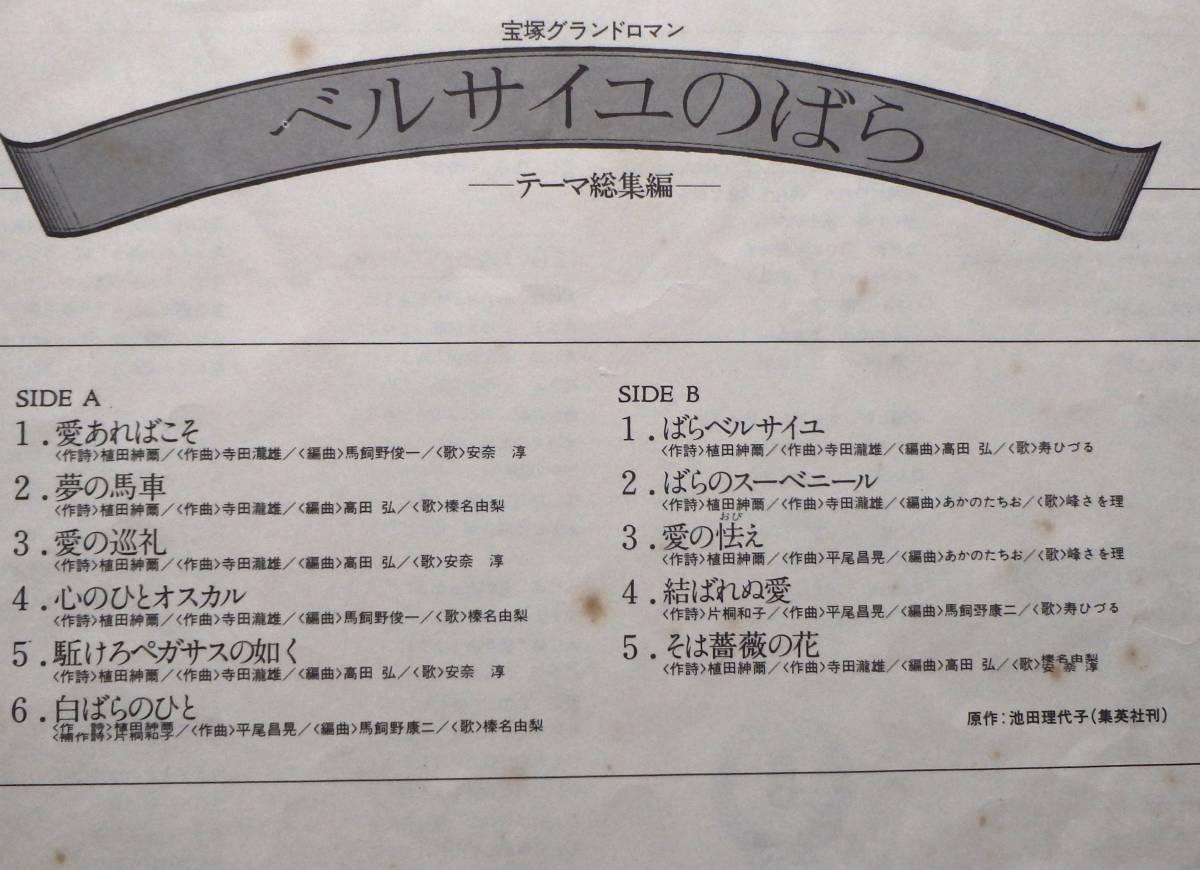 宝塚グランドロマン
ベルサイユのばら
―テーマ総集編―
SIDE A
1.愛あればこそ
〈作詩〉植田紳爾/〈作曲〉寺田瀧雄/〈編曲〉馬飼野俊一/〈歌〉安奈 淳
2.夢の馬車
〈作詩〉植田紳爾/〈作曲〉寺田瀧雄/〈編曲〉高田 弘/〈歌〉榛名由梨
3.愛の巡礼
〈作詩〉植田紳爾/〈作曲〉寺田瀧雄/〈編曲〉高田 弘/〈歌〉安奈 淳
4.心のひとオスカル
〈作詩〉植田紳爾/〈作曲〉寺田瀧雄/〈編曲〉馬飼野俊一/〈歌〉榛名由梨
5.駈けろペガサスの如く
〈作詩〉植田紳爾/〈作曲〉寺田瀧雄/〈編曲〉高田 弘/〈歌〉安奈 淳
6.白ばらのひと
〈作 詩〉植田紳爾
〈補作詩〉片桐和子/〈作曲〉平尾昌晃/〈編曲〉馬飼野康二/〈歌〉榛名由梨
SIDE B
1.ばらベルサイユ
〈作詩〉植田紳爾/〈作曲〉寺田瀧雄/〈編曲〉高田 弘/〈歌〉寿ひづる
2.ばらのスーベニール
〈作詩〉植田紳爾/〈作曲〉寺田瀧雄/〈編曲〉あかのたちお/〈歌〉峰さを理
おび
3.愛の怯え
〈作詩〉植田紳爾/〈作曲〉平尾昌晃/〈編曲〉あかのたちお/〈歌〉峰さを理
4.結ばれぬ愛
〈作詩〉片桐和子/〈作曲〉平尾昌晃/〈編曲〉馬飼野康二/〈歌〉寿ひづる
5.そは薔薇の花
〈作詩〉植田紳爾/〈作曲〉寺田瀧雄/〈編曲〉高田 弘/〈歌〉榛名由梨
安奈 淳
原作:池田理代子(集英社刊)